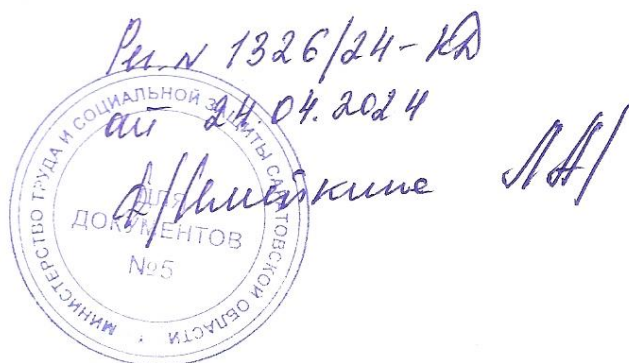 Рег. № 1326/24-КД
от 24.04.2024
ЛА/
МИНИСТЕРСТВО ТРУДА И СОЦИАЛЬНОЙ ЗАЩИТЫ САРАТОВСКОЙ ОБЛАСТИ
ДЛЯ
ДОКУМЕНТОВ
№5